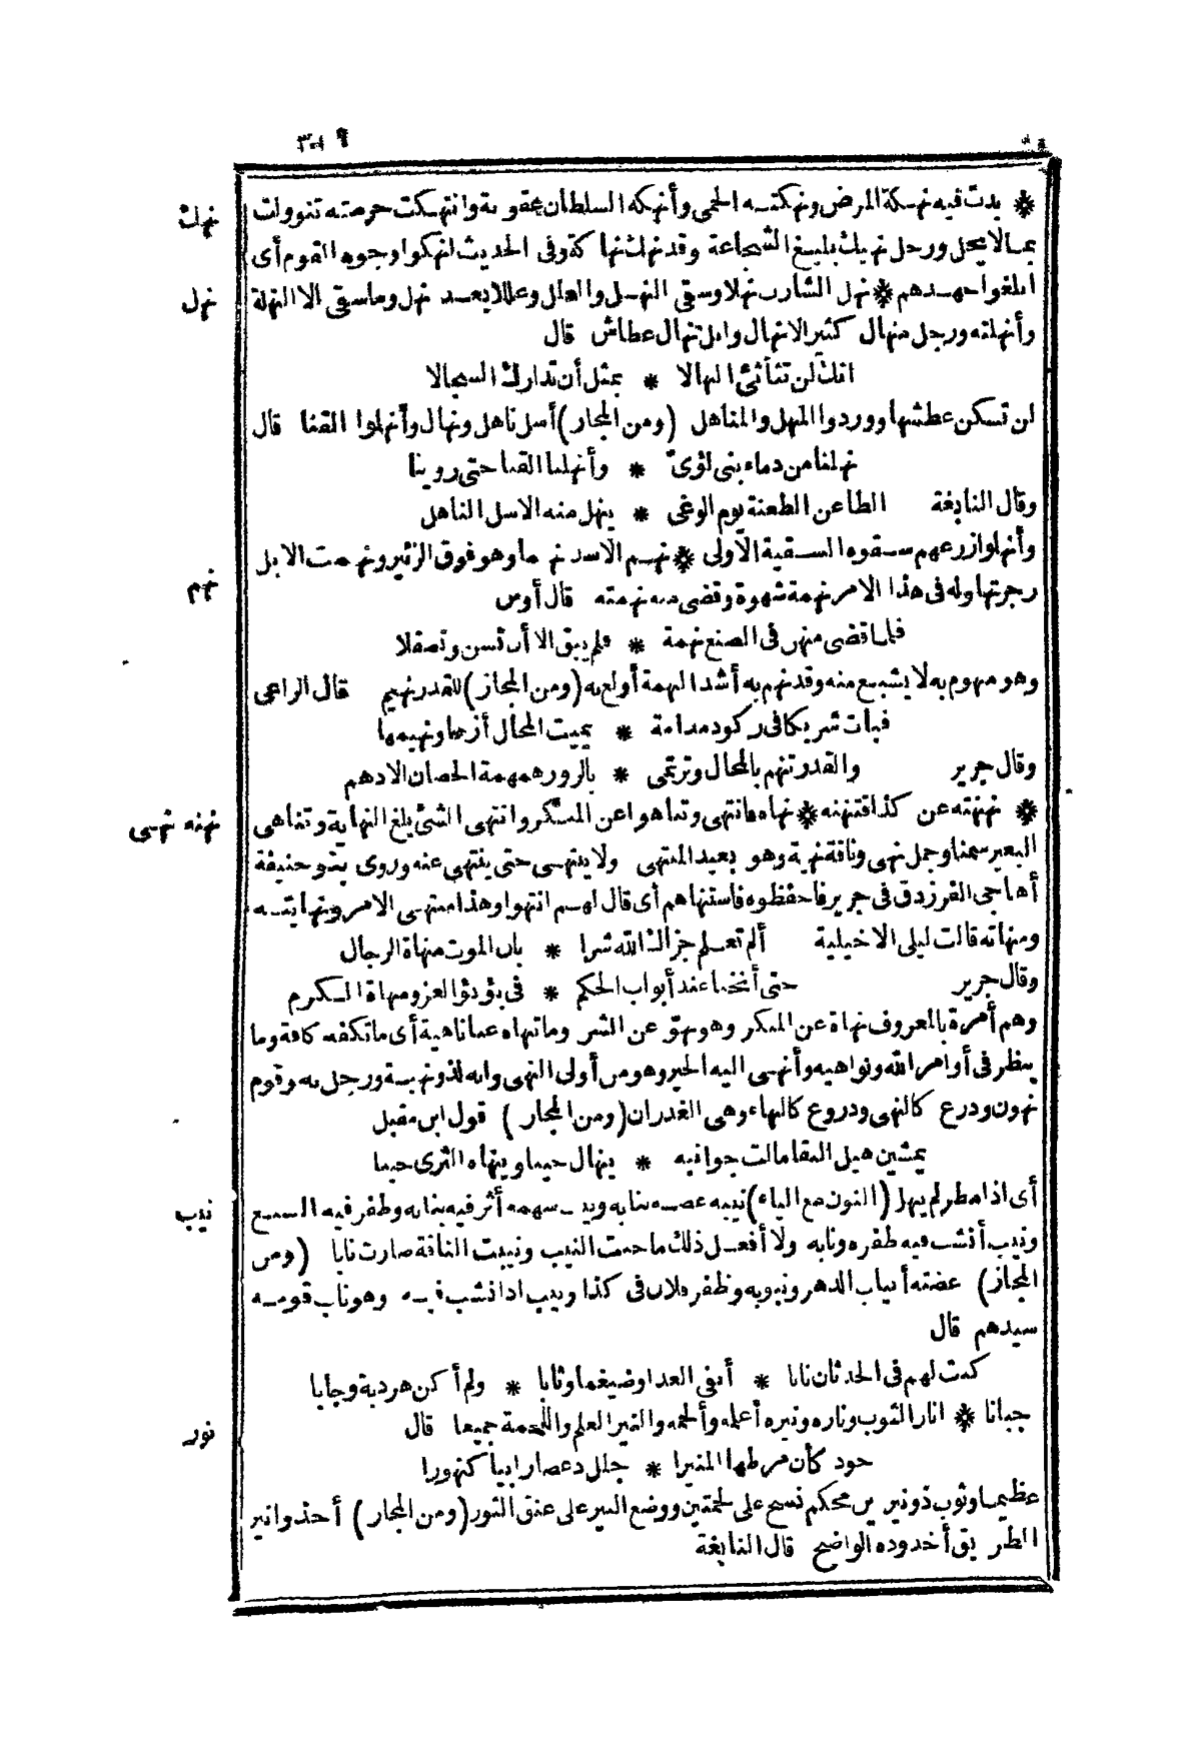 ٣٠٩
❋ بدت فيه نهكة المرض ونهكته الحمى وأنهكه السلطان عقوبة وانتهكت حرمته تنوولت
نهك
بما لا يحل ورجل نهيك بليغ الشجاعة وقد نهك نهاكة وفى الحديث انهكوا وجوه القوم أى
ابلغوا جهدهم ❋ نهل الشارب نهلا وسقى النهل والعلل وعللا بعد نهل وما سقى الا النهلة
نهل
وأنهلته ورجل منهال كثير الانهال وابل نهال عطاش قال
انك لن تثأثئ النهالا * بمثل أن تدارك السجالا
لن تسكن عطشها ووردوا المنهل والمناهل (ومن المجاز) أسل ناهل ونهال وأنهلوا القنا قال
نهلنا من دماء بنى لؤىّ * وأنهلنا القنا حتى روينا
وقال النابغة الطاعن الطعنة يوم الوغى * ينهل منه الاسل الناهل
وأنهلوا زرعهم سقوه السقية الأولى ❋ نهم الاسد نهما وهو فوق الزئير ونهمت الابل
نهم
زجرتها وله فى هذا الامر نهمة شهوة وقضى منه نهمته قال أوس
فلما قضى منهن فى الصنع نهمة * فلم يبق الا أن تسن وتصقلا
وهو منهوم به لا يشبع منه وقد نهم به أشد النهمة أولع به (ومن المجاز) للقدر نهيم قال الراعى
فبات شريكا فى ركود مدامة * يميت المحال أزها ونهيمها
وقال جرير والقدر تنهم بالمحال وترتمى * بالزور همهمة الحصان الادهم
❋ نهنهته عن كذا فتنهنه ❋ نهاه فانتهى وتناهوا عن المنكر وانتهى الشئ بلغ النهاية وتناهى
نهنه نهى
البعير سمنا وجمل نهى وناقة نهية وهو بعيد المنتهى ولا ينتهى حتى ينتهى عنه وروى بنو حنيفة
أهاجى الفرزدق فى جرير فاحفظوه فاستنهاهم أى قال لهم انتهوا وهذا منتهى الامر ونهايته
ومنهاته قالت ليلى الاخيلية ألم تعلم جزاك الله شرا * بان الموت منهاة الرجال
وقال جرير حتى أنخنا عند أبواب الحكم * فى بؤبؤ العز ومنهاة الكرم
وهم أمرة بالمعروف نهاة عن المنكر وهو نهوّ عن الشر وما تنهاه عنا ناهية أى ما تكفه كافة وما
ينظر فى أوامر الله ونواهيه وأنهى اليه الخبر وهو من أولى النهى وانه لذو نهية ورجل نه وقوم
نهون ودرع كالنهى ودروع كالنهاء وهى الغدران (ومن المجاز) قول ابن مقبل
يمشين هيل النقا مالت جوانبه * ينهال حينا وينهاه الثرى حينا
أى اذا مطر لم ينهل (النون مع الياء) نيبه عضه بنابه ونيب سهمه أثر فيه بنابه وظفر فيه السبع
نيب
ونيب أنشب فيه ظفره ونابه ولا أفعل ذلك ما حنت النيب ونيبت الناقة صارت نابا (ومن
المجاز) عضته أنياب الدهر ونيوبه وظفر فلان فى كذا ونيب اذا نشب فيه وهو ناب قومه
سيدهم قال
كنت لهم فى الحدثان نابا * أنفى العدا وضيغما وثابا * ولم أكن هردبة وجابا
جبانا ❋ انار الثوب وناره ونيره أعلمه وألحمه والنير العلم واللحمة جميعا قال
نور
خود كأن مرطها المنيرا * جلل دعصا رابيا كنهورا
عظيما وثوب ذو نيرين محكم نسج على لحمتين ووضع النير على عنق الثور (ومن المجاز) أخذوا نير
الطريق أخدوده الواضح قال النابغة